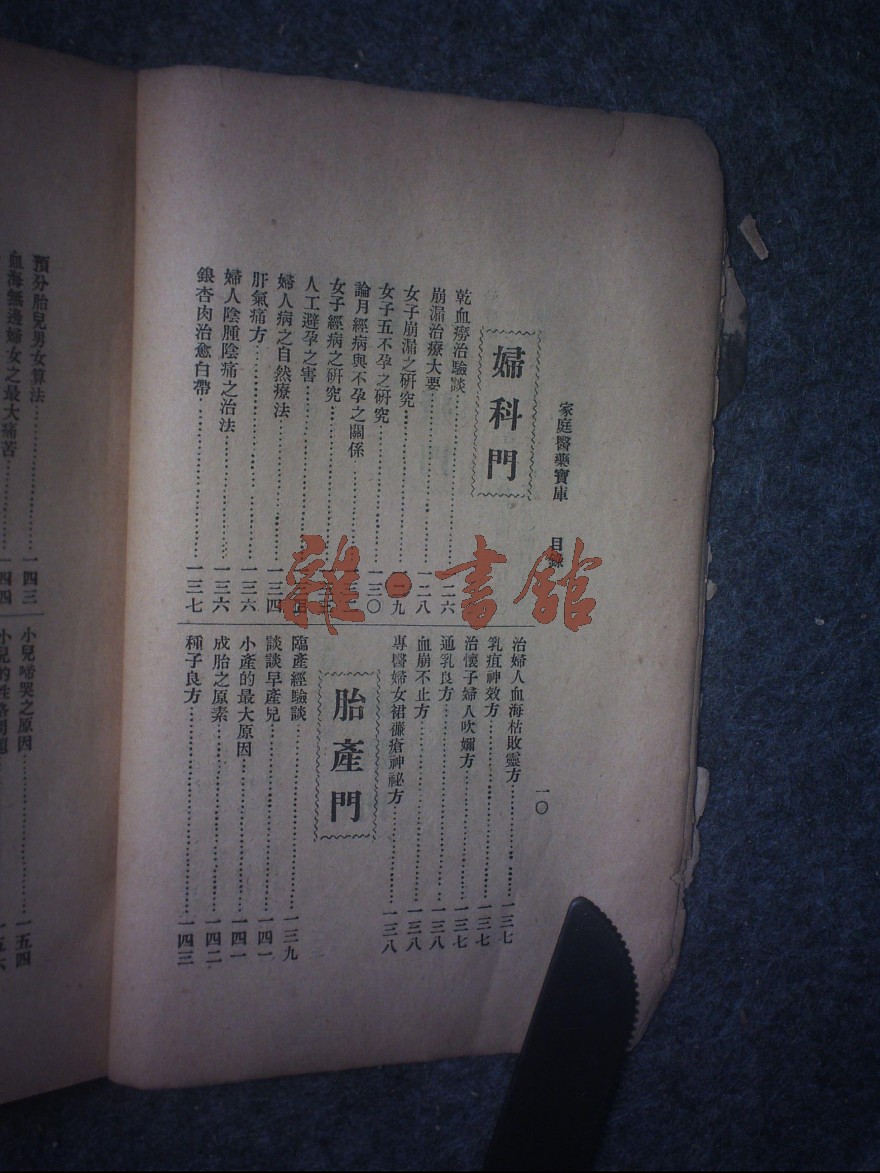 家庭醫藥寶庫 目錄 一〇
婦科門
乾血癆治驗談…………一二六
崩漏治療大要…………一二八
女子崩漏之研究…………一二九
女子五不孕之研究…………一三〇
論月經病與不孕之關係…………
女子經病之研究…………
人工避孕之害…………
婦人病之自然療法…………一三四
肝氣痛方…………一三六
婦人陰腫陰痛之治法…………一三六
銀杏肉治愈白帶…………一三七
治婦人血海枯敗靈方…………一三七
乳疽神效方…………一三七
治懷子婦人吹嬭方…………一三七
通乳良方…………一三八
血崩不止方…………一三八
專醫婦女裙臁瘡神祕方…………一三八
胎產門
臨產經驗談…………一三九
談談早產兒…………一四一
小產的最大原因…………一四一
成胎之原素…………一四二
種子良方…………一四三
預分胎兒男女算法…………一四三
血海無邊婦女之最大痛苦…………一四四
小兒啼哭之原因…………一五四
小兒的性格問題…………一五六
雜·書館